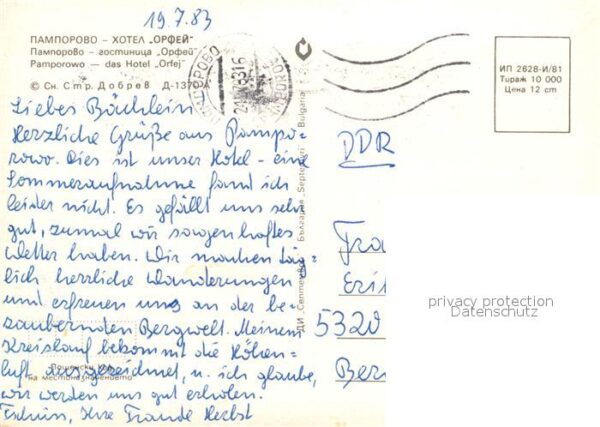 19.7.83
ПАМПОРОВО – ХОТЕЛ „ОРФЕЙ"
Пампорово – гостиница „Орфей"
Pamporowo — das Hotel „Orfej"
© Сн. Стр. Добрев Д-1370-А
ИП 2628-И/81
Тираж 10 000
Цена 12 cm
Liebes Bäuchlein
Herzliche Grüße aus Pampo-
rowo. Dies ist unser Hotel - eine
Sommeraufnahme fand ich
leider nicht. Es gefällt uns sehr
gut, zumal wir sagenhaftes
Wetter haben. Wir machen täg-
lich herrliche Wanderungen
und erfreuen uns an der be-
zaubernden Bergwelt. Meinem
Kreislauf bekommt die Höhen-
luft ausgezeichnet, u. ich glaube,
wir werden uns gut erholen.
Tschüss, Ihre Traude Herbst
на местоназначението
ДИ „Септември" България „Septemvri" Bulgaria
DDR
Fra
Eri
5320
Ber
privacy protection
Datenschutz